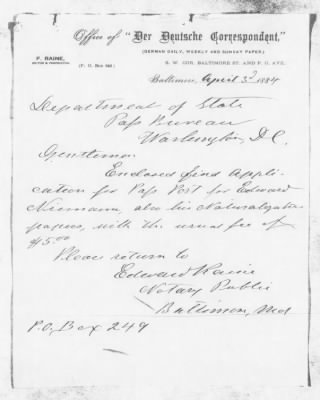 Office of "Der Deutsche Correspondent,"
(GERMAN DAILY, WEEKLY AND SUNDAY PAPER.)
F. RAINE,
EDITOR & PROPRIETOR.
(P. O. Box)
S. W. COR. BALTIMORE ST. AND P. O. AVE.
Baltimore, April 3d 1884
Department of State
Pass Bureau
Washington D.C.
Gentlemen
Enclosed find Appli-
cation for Pass Port for Edward
Niemann, also his Naturalization
papers, with the usual fee of
$5.00
Please return to
Edward Raine
Notary Public
Baltimore, Md
P.O. Box 249